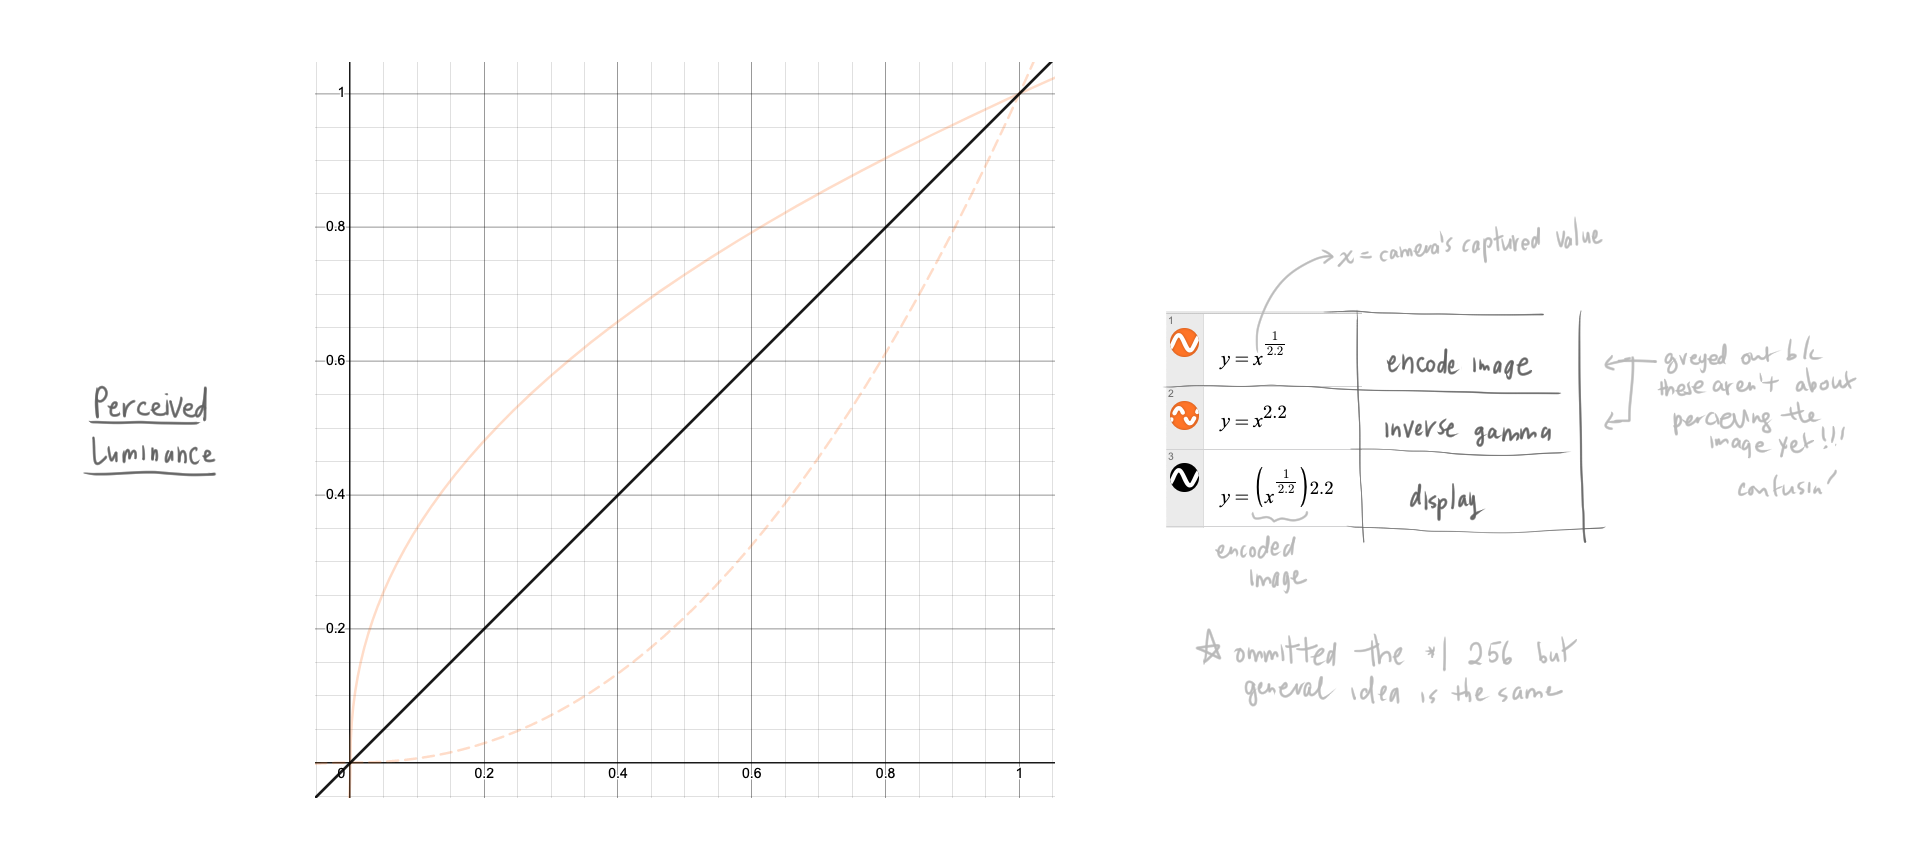 Perceived
Luminance
1
0.8
0.6
0.4
0.2
0
0.2
0.4
0.6
0.8
1
x = camera's captured value
1
y = x^(1/2.2)
encode image
2
y = x^2.2
inverse gamma
3
y = (x^(1/2.2))2.2
display
encoded
image
greyed out b/c
these aren't about
percieving the
image yet!!!
confusin'
☆ ommitted the *| 256 but
general idea is the same